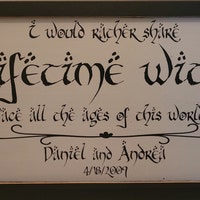 I would rather share
ifetime wit
ace all the ages of this world
Daniel and Andrea
4/18/2009